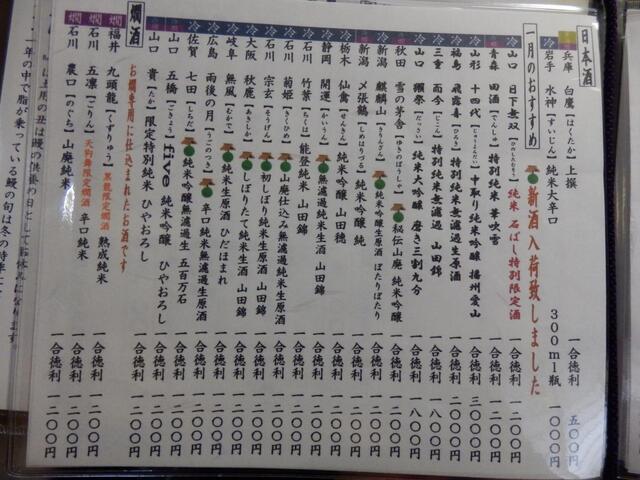 日本酒
兵庫 白鷹【はくたか】 上撰 一合徳利 五〇〇円
岩手 水神【すいじん】 純米大辛口 300ml瓶 一〇〇〇円
一月のおすすめ 新酒入荷致しました
冷 山口 日下無双 純米 石ばし特別限定酒 一合徳利 一二〇〇円
冷 青森 田酒【でんしゅ】 特別純米 華吹雪 一合徳利 一二〇〇円
冷 山形 十四代 中取り純米吟醸 播州愛山 一合徳利 三〇〇〇円
冷 福島 飛露喜【ひろき】 特別純米無濾過生原酒 一合徳利 二〇〇〇円
冷 三重 而今【じこん】 特別純米無濾過 山田錦 一合徳利 一八〇〇円
冷 山口 獺祭【だっさい】 純米大吟醸 磨き三割九分 一合徳利 一八〇〇円
秋田 雪の茅舎【ゆきのぼうしゃ】 秘伝山廃 純米吟醸 一合徳利 一二〇〇円
新潟 麒麟山【きりんざん】 純米吟醸生原酒 ぽたりぽたり 一合徳利 一二〇〇円
新潟 〆張鶴【しめはりづる】 純米吟醸 純 一合徳利 一二〇〇円
冷 栃木 仙禽【せんきん】 純米吟醸 山田穂 一合徳利 一二〇〇円
冷 静岡 開運【かいうん】 無濾過純米生酒 山田錦 一合徳利 一二〇〇円
冷 石川 竹葉【ちくは】 能登純米 山田錦 一合徳利 一二〇〇円
冷 石川 菊姫【きくひめ】 山廃仕込み無濾過純米生原酒 山田錦 一合徳利 一二〇〇円
冷 石川 宗玄【そうげん】 初しぼり純米生原酒 山田錦 一合徳利 一二〇〇円
冷 大阪 秋鹿【あきしか】 しぼりたて純米生酒 山田錦 一合徳利 一二〇〇円
冷 岐阜 無風【むかで】 純米生原酒 ひだほまれ 一合徳利 一二〇〇円
冷 広島 雨後の月【うごのつき】 辛口純米無濾過生原酒 一合徳利 一二〇〇円
冷 佐賀 七田【しちだ】 純米吟醸無濾過生 五百万石 一合徳利 一二〇〇円
山口 五橋【ごきょう】 five 純米吟醸 ひやおろし 一合徳利 一二〇〇円
山口 貴【たか】 限定特別純米 ひやおろし 一合徳利 一二〇〇円
燗酒 お燗専用に仕込まれたお酒です
燗 福井 九頭龍【くずりゅう】 黒龍限定燗酒 熟成純米 一合徳利 一二〇〇円
燗 石川 五凛【ごりん】 天狗舞限定燗酒 辛口純米 一合徳利 一二〇〇円
燗 石川 農口【のぐち】 山廃純米 一合徳利 一二〇〇円
一年の中で脂が乗っている鰻の旬は冬の時季